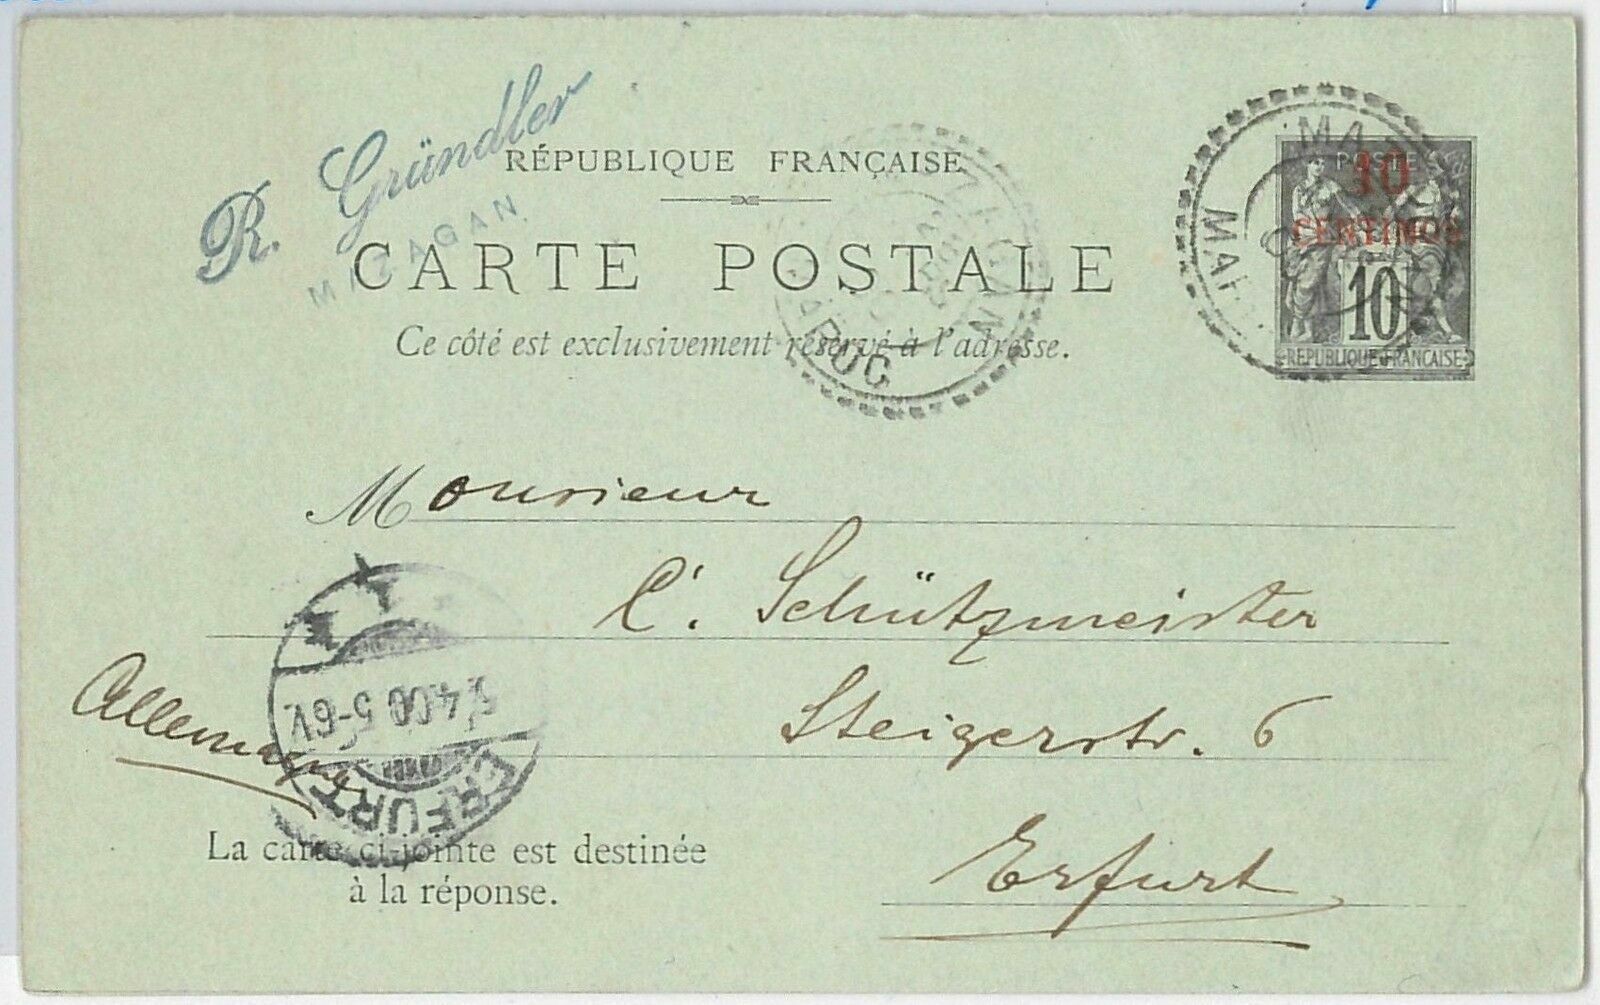 R. Gründler
MAZAGAN
RÉPUBLIQUE FRANÇAISE
CARTE POSTALE
Ce côté est exclusivement réservé à l'adresse.
MAZAGAN
MAROC
MA
MAR
POSTE
10
CENTIMOS
10
REPUBLIQUE FRANÇAISE
Monsieur
C. Schützmeister
Steigerstr. 6
Erfurt
Allemagne
4.00 5-6V.
ERFURT
La carte ci-jointe est destinée
à la réponse.